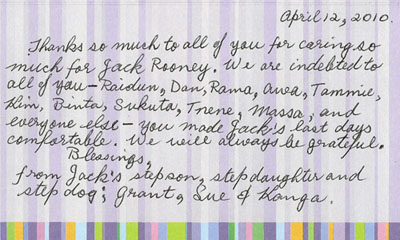 April 12, 2010.
Thanks so much to all of you for caring so
much for Jack Rooney. We are indebted to
all of you - Raidun, Dan, Rama, Awa, Tammie,
Kim, Binta, Sukuta, Tnene, Massa, and
everyone else - you made Jack's last days
comfortable. We will always be grateful.
Blessings,
from Jack's stepson, stepdaughter and
step dog; Grant, Sue & Kanga.